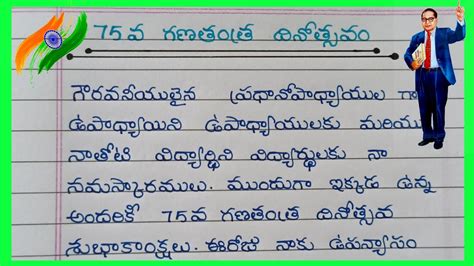 75 వ గణతంత్ర దినోత్సవం
గౌరవనీయులైన ప్రధానోపాధ్యాయుల గా
ఉపాధ్యాయిని ఉపాధ్యాయులకు మరియు
నాతోటి విద్యార్థిని విద్యార్థులకు నా
నమస్కారములు. ముందుగా ఇక్కడ ఉన్న
అందరికీ 75వ గణతంత్ర దినోత్సవ
శుభాకాంక్షలు. ఈరోజు నాకు ఉపన్యాసం